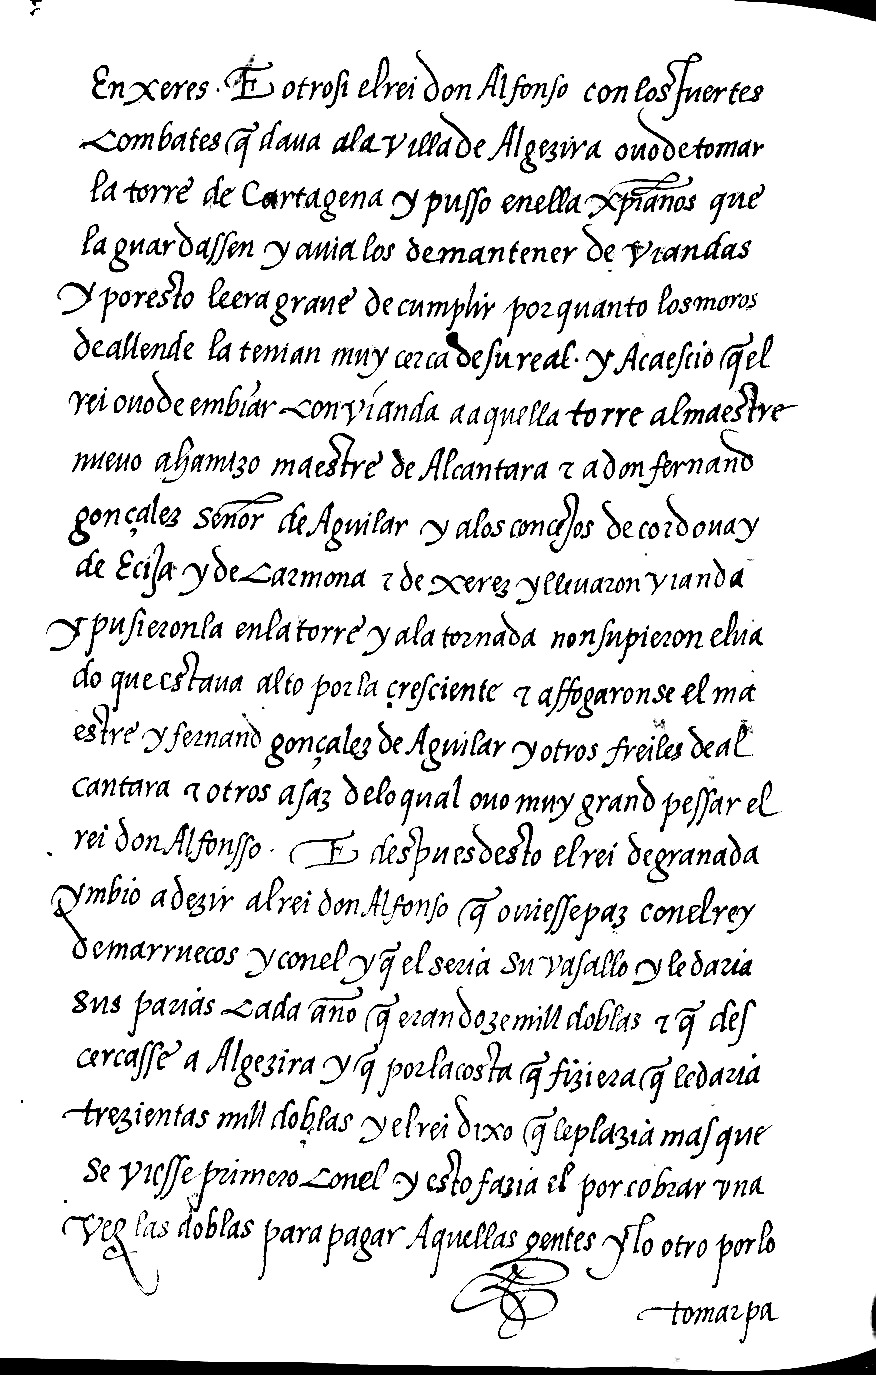 En xeres. E otrosi el rei don Alfonso con los fuertes
combates q̃ daua ala villa de Algezira ouo de tomar
la torre de Cartagena y pusso en ella xp̃ianos que
la guardassen y auia los de mantener de viandas
y por esto le era graue de cumplir por quanto los moros
de allende la tenian muy cerca de su real. y Acaescio q̃ el
rei ouo de embiar con vianda a aquella torre al maestre
nueuo a hamizo maestre de Alcantara τ a don fernand
gonçalez señor de Aguilar y a los concejos de cordoua y
de Ecija y de carmona τ de xerez y lleuaron vianda
y pusieronla en la torre y a la tornada non supieron el ua
do que estaua alto por la çresciente τ affogaronse el ma
estre y fernand gonçalez de Aguilar y otros freiles de al
cantara τ otros asaz de lo qual ouo muy grand pessar el
rei don Alfonsso. E despues desto el rei de granada
ymbio a dezir al rei don Alfonso q̃ ouiesse paz con el rey
de marruecos y con el y q̃ el seria su vasallo y le daria
sus parias cada año q̃ eran doze mill doblas τ q̃ des
cercasse a Algezira y q̃ por la costa q̃ fiziera q̃ le daria
trezientas mill doblas y el rei dixo q̃ le plazia mas que
se viesse primero con el y esto fazia el por cobrar vna
vez las doblas para pagar Aquellas gentes y lo otro por lo
tomar pa